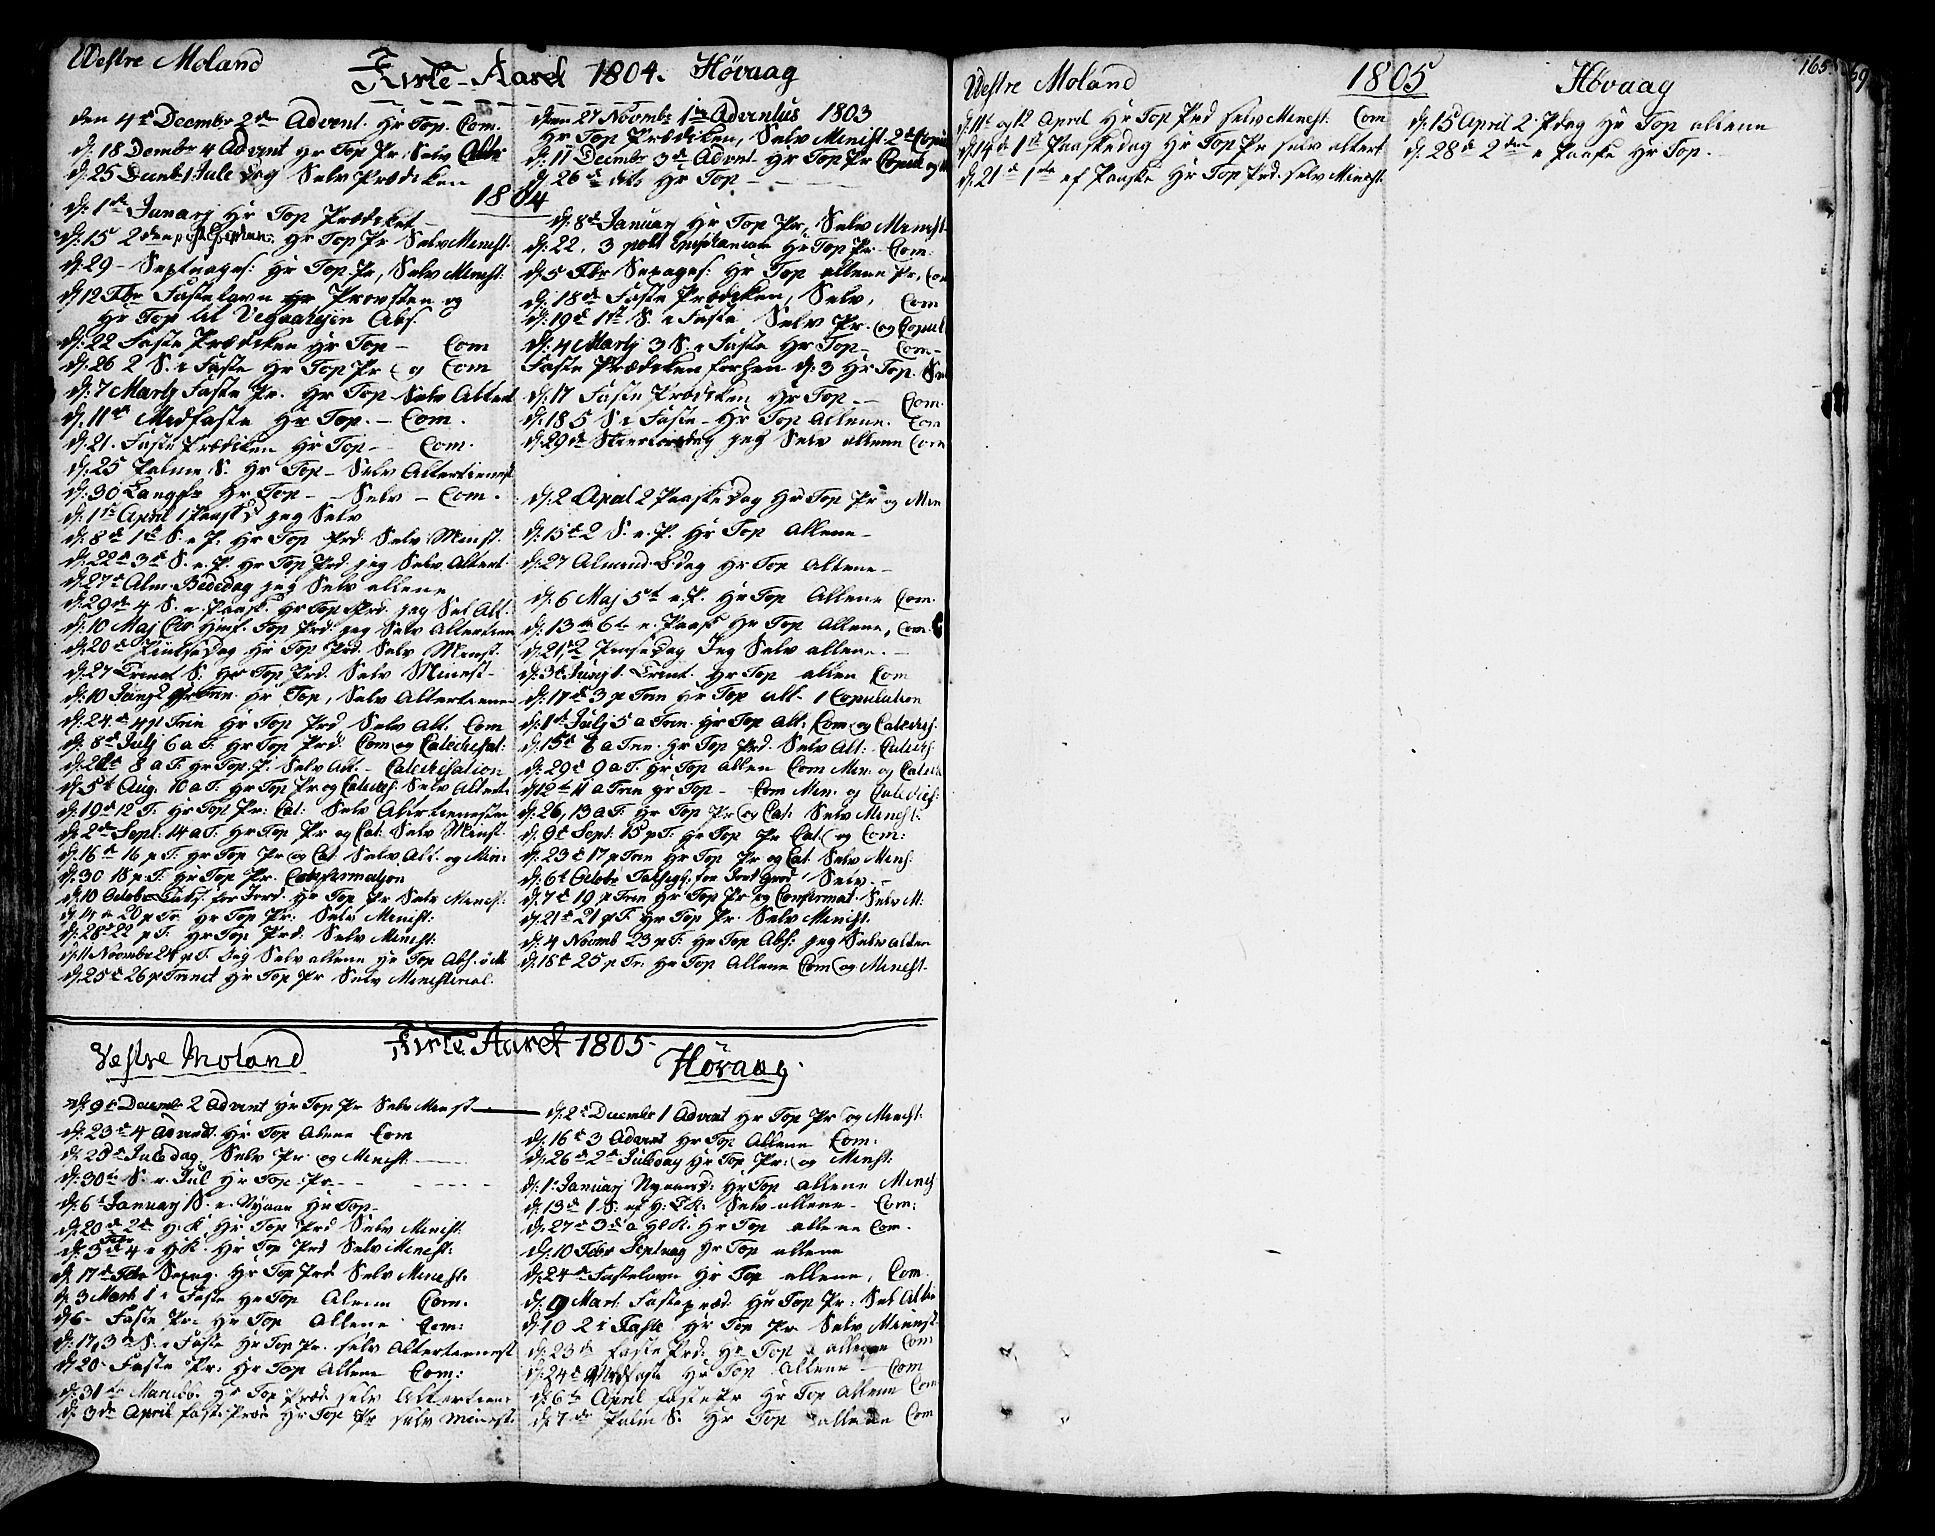 Westre Moland
Kirke-Aaret 1804. Høvaag
den 4de Decembr 2den Advent. Hr Top. Com.
d: 18 Dembr 4 Advent Hr Top Pr, Selv
d: 25 Jule Dag Selv Prædiken
1804
d: 1te Januarj Hr Top Prædiket
d: 15 2den p. Hr Top Pr Selv Minist:
d: 29 - Septuages: Hr Top Pr, Selv Minist:
d: 12 Fbr Fastelavn Provsten og
Hr Top til Abs.
d: 22 Faste Prædiken Hr Top - Com
d: 26 2 S. i Faste Hr Top Pr og Com
d: 7 Martj Faste Pr. Hr Top Selv Altert
d: 11te Midfaste Hr Top. - Com.
d: 21. Faste Prædiken Hr Top - Com.
d: 25 Palme S. Hr Top - Selv Altertienest
d: 30 Langfr Hr Top - Selv - Com.
d: 1te April 1 Paaskd jeg Selv
d: 8de 1te S. e. P. Hr Top Prd. Selv Minist.
d: 22de 3de S. e. P. Hr Top Prd. jeg Selv Altert.
d: 27de Alm: Bededag jeg Selv allene
d: 29de 4 S. e. Paask. Hr Top Prd. jeg Sel Alt.
d: 10 Maj Chr. Himf. Top Prd. jeg Selv Altertien
d: 20de Pintsedag Hr Top Prd. Selv Minist.
d: 27 Trinit S. Hr Top Prd. Selv Minist-
d: 10 Junj 2 Hr Top, Selv Altertiene
d: 24de 4 p Trin Hr Top Prd Selv Alt. Com
d: 8de Julj 6 a T: Hr Top Prd. Com og Catechisat:
d: 22de 8 a T. Hr Top P. Selv Alt. - Catechisation
d: 5te Aug. 10 a T. Hr Top Pr og Catechs: Selv Altert
d: 19de 12 T. Hr Top Pr: Cat: Selv Altertienesten
d: 2de Sept: 14 a T: Hr Top Pr og Cat: Selv Minst.
d: 16de 16 p T: Hr Top Pr og Cat. Selv Alt. og Min:
d: 30 18 p T: Hr Top Pr. Confirmation
d: 10 Octobr for Jord. Hr Top Pr Selv Minist:
d: 14de 20 p Tr: Hr Top Pr: Selv Minist:
d: 28de 22 p T. Hr Top Prd. Selv Minist:
d: 11 Novembr 24 p T. Jeg Selv allene Hr Top Abs.
d: 25de 26 p Trinit Hr Top Pr Selv Ministerial.
den 27 Novembr 1ste Adventus 1803
Hr Top Prædiken, Selv Minist 2de
d: 11 Decembr 3de Advnt. Hr Top Pr
d: 26de dito Hr Top -
d: 8de Januarj Hr Top Pr, Selv Minist.
d: 22, 3 post Epiphaniam Hr Top Pr Com.
d: 5 Fbr Sexages: Hr Top allene Pr, Com
d: 18de Faste Prædiken, Selv, Com
d: 19de 1ste S. i Faste Selv Pr. og Copul
d: 4 Martj 3 S. i Faste Hr Top - Com-
Faste Prædiken forhen d: 3 Hr Top.
d: 17 Faste Prædiken Hr Top - Com.
d: 18 5 S i Faste - Hr Top Allene. Com
d: 29de Skiertorsdag jeg Selv allene Com
d: 2 April 2 Paaske dag Hr Top Pr og Min
d: 15de 2 S. e. P. Hr Top Allene-
d: 27 Almind. B.dag Hr Top Allene-
d: 6 Maj 5te e. P. Hr Top Allene Com.
d: 13de 6te e. Paask Hr Top Allene, Com.
d: 21, 2 Pinsedag Jeg Selv allene. -
d: 3de Junj 1. Trinit. Hr Top allen Com
d: 17de 3 p Trin Hr Top Alt. 1 Copulation
d: 1te Julj 5 a Trin. Hr Top Alt. Com og Catechis:
d: 15de a Trin. Hr Top Prd. Selv Alt: Catechs.
d: 29de 9 a T. Hr Top allen Com Min: og Catech
d: 12te 11 a Trin Hr Top - Com Min. og Catechis:
d: 26, 13 a T: Hr Top Pr og Cat: Selv Minist:
d: 9de Sept: 15 p T. Hr Top Pr Cat: og Com:
d: 23de 17 p Trin Hr Top Pr og Cat. Selv Mins:
d: 6te Octobr for Jord Selv
d: 7de 19 p Trin Hr Top Pr og Confirmat. Selv M:
d: 21de 21 p T. Hr Top Pr. Selv Minist.
d: 4 Novemb 23 p T: Hr Top Abs: jeg Selv allen
d: 18de 25 p Tr: Hr Top Allene Com og Minist-
Kirke Aaret 1805.
Vestre Moland
Høvaag.
d: 9de Decembr 2 Advent Hr Top Pr Selv Minist
d: 23de 4 Advent. Hr Top Alene Com
d: 25de Juledag Selv Pr og Minist.
d: 30te S. e. Jul Hr Top Pr.
d: 6te Januarj S. e. Nyaar Hr Top-
d: 20de 2de H.K Hr Top Prd Selv Minist.
d: 3de Febr 4 e H.K. Hr Top Prd Selv Minist:
d: 17de Fbr Septuag. Hr Top Prd. Selv Minist:
d: 3 Marti 1 i Faste Hr Top Alene Com.
d: 6- Faste Pr: Hr Top Allene Com:
d: 17, 3de S. i Faste Hr Top Pr. selv Altertiennest
d: 20- Faste Pr: Hr Top Allene Com:
d: 31te Hr Top Præd. selv Altertiene
d: 3de April faste Præd Hr Top Pr selv Minist.
d: 2de Decembr 1 Advent Hr Top Pr og Minist:
d: 16de 3 Advent Hr Top Allene Com:
d: 26de 2de Juledag Hr Top Pr: og Minist:
d: 1te Januarj Nyaarsd: Hr Top allene Minist
d: 13de 1 S. ef. H. 3 K. Selv allene- Com:
d: 27de 3de a H.K. Hr Top allene Com.
d: 10 Febr Septuag Hr Top allene
d: 24de Fastelavn Hr Top allene, Com.
d: 9 Mart. Fastepræd. Hr Top Pr: Sel Alt
d: 10 2 i Faste Hr Top Pr Selv Minist
d: 23de faste Prd: Hr Top allene Com
d: 24de Midfaste Hr Top Allene - Com
d: 6te April faste Pr Hr Top Allene Com
d: 7de Palm S. Hr Top allene Com
165
Westre Moland
1805
Høvaag
d: 11te og 12 April Hr Top Prd selv Minist: Com
d: 14de 1ste Paaskedag Hr Top Pr selv altert
d: 21de 1ste ef Paaske Hr Top Prd. selv Minist.
d: 15 April 2. Pdag Hr Top allene
d: 28de 2den e Paaske Hr Top.